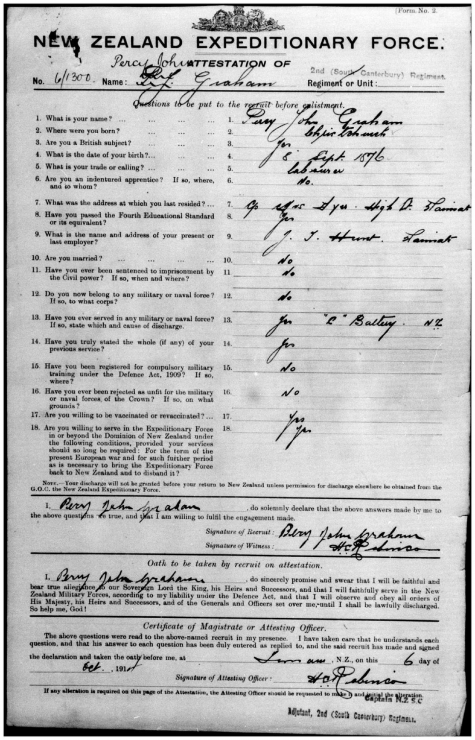 (Form No. 2.
NEW ZEALAND EXPEDITIONARY FORCE.
Percy John
ATTESTATION OF
No. 6/1300. Name: P. J. Graham Regiment or Unit: 2nd (South Canterbury) Regiment.
Questions to be put to the recruit before enlistment.
1. What is your name? ... ... ... 1. Percy John Graham
2. Where were you born? ... ... 2. Christchurch
3. Are you a British subject? ... ... 3. Yes
4. What is the date of your birth?... ... 4. 8 Sept. 1876
5. What is your trade or calling? ... ... 5. labourer
6. Are you an indentured apprentice? If so, where, 6. No.
and to whom?
7. What was the address at which you last resided? ... 7. c/o Mrs Dyer High St Timaru
8. Have you passed the Fourth Educational Standard 8. Yes
or its equivalent?
9. What is the name and address of your present or 9. J. T. Hunt. Timaru
last employer?
10. Are you married? ... ... ... ... 10. No
11. Have you ever been sentenced to imprisonment by 11. No
the Civil power? If so, when and where?
12. Do you now belong to any military or naval force? 12. No
If so, to what corps?
13. Have you ever served in any military or naval force? 13. Yes "E" Battery. NZ
If so, state which and cause of discharge.
14. Have you truly stated the whole (if any) of your 14. Yes
previous service?
15. Have you been registered for compulsory military 15. No
training under the Defence Act, 1909? If so,
where?
16. Have you ever been rejected as unfit for the military 16. No
or naval forces of the Crown? If so, on what
grounds?
17. Are you willing to be vaccinated or revaccinated? ... 17. Yes
18. Are you willing to serve in the Expeditionary Force 18. Yes
in or beyond the Dominion of New Zealand under
the following conditions, provided your services
should so long be required: For the term of the
present European war and for such further period
as is necessary to bring the Expeditionary Force
back to New Zealand and to disband it?
NOTE.—Your discharge will not be granted before your return to New Zealand unless permission for discharge elsewhere be obtained from the
G.O.C. the New Zealand Expeditionary Force.
I, Percy John Graham, do solemnly declare that the above answers made by me to
the above questions are true, and that I am willing to fulfil the engagement made.
Signature of Recruit: Percy John Graham
Signature of Witness:
Oath to be taken by recruit on attestation.
I, Percy John Graham, do sincerely promise and swear that I will be faithful and
bear true allegiance to our Sovereign Lord the King, his Heirs and Successors, and that I will faithfully serve in the
New Zealand Military Forces, according to my liability under the Defence Act, and that I will observe and obey all orders of
His Majesty, his Heirs and Successors, and of the Generals and Officers set over me, until I shall be lawfully discharged.
So help me, God!
Certificate of Magistrate or Attesting Officer.
The above questions were read to the above-named recruit in my presence. I have taken care that he understands each
question, and that his answer to each question has been duly entered as replied to, and the said recruit has made and signed
the declaration and taken the oath before me, at Timaru, N.Z., on this 6 day of
Oct., 1914
Signature of Attesting Officer:
If any alteration is required on this page of the Attestation, the Attesting Officer should be requested to make it and initial the alteration.
Captain N.Z.S.C
Adjutant, 2nd (South Canterbury) Regiment.